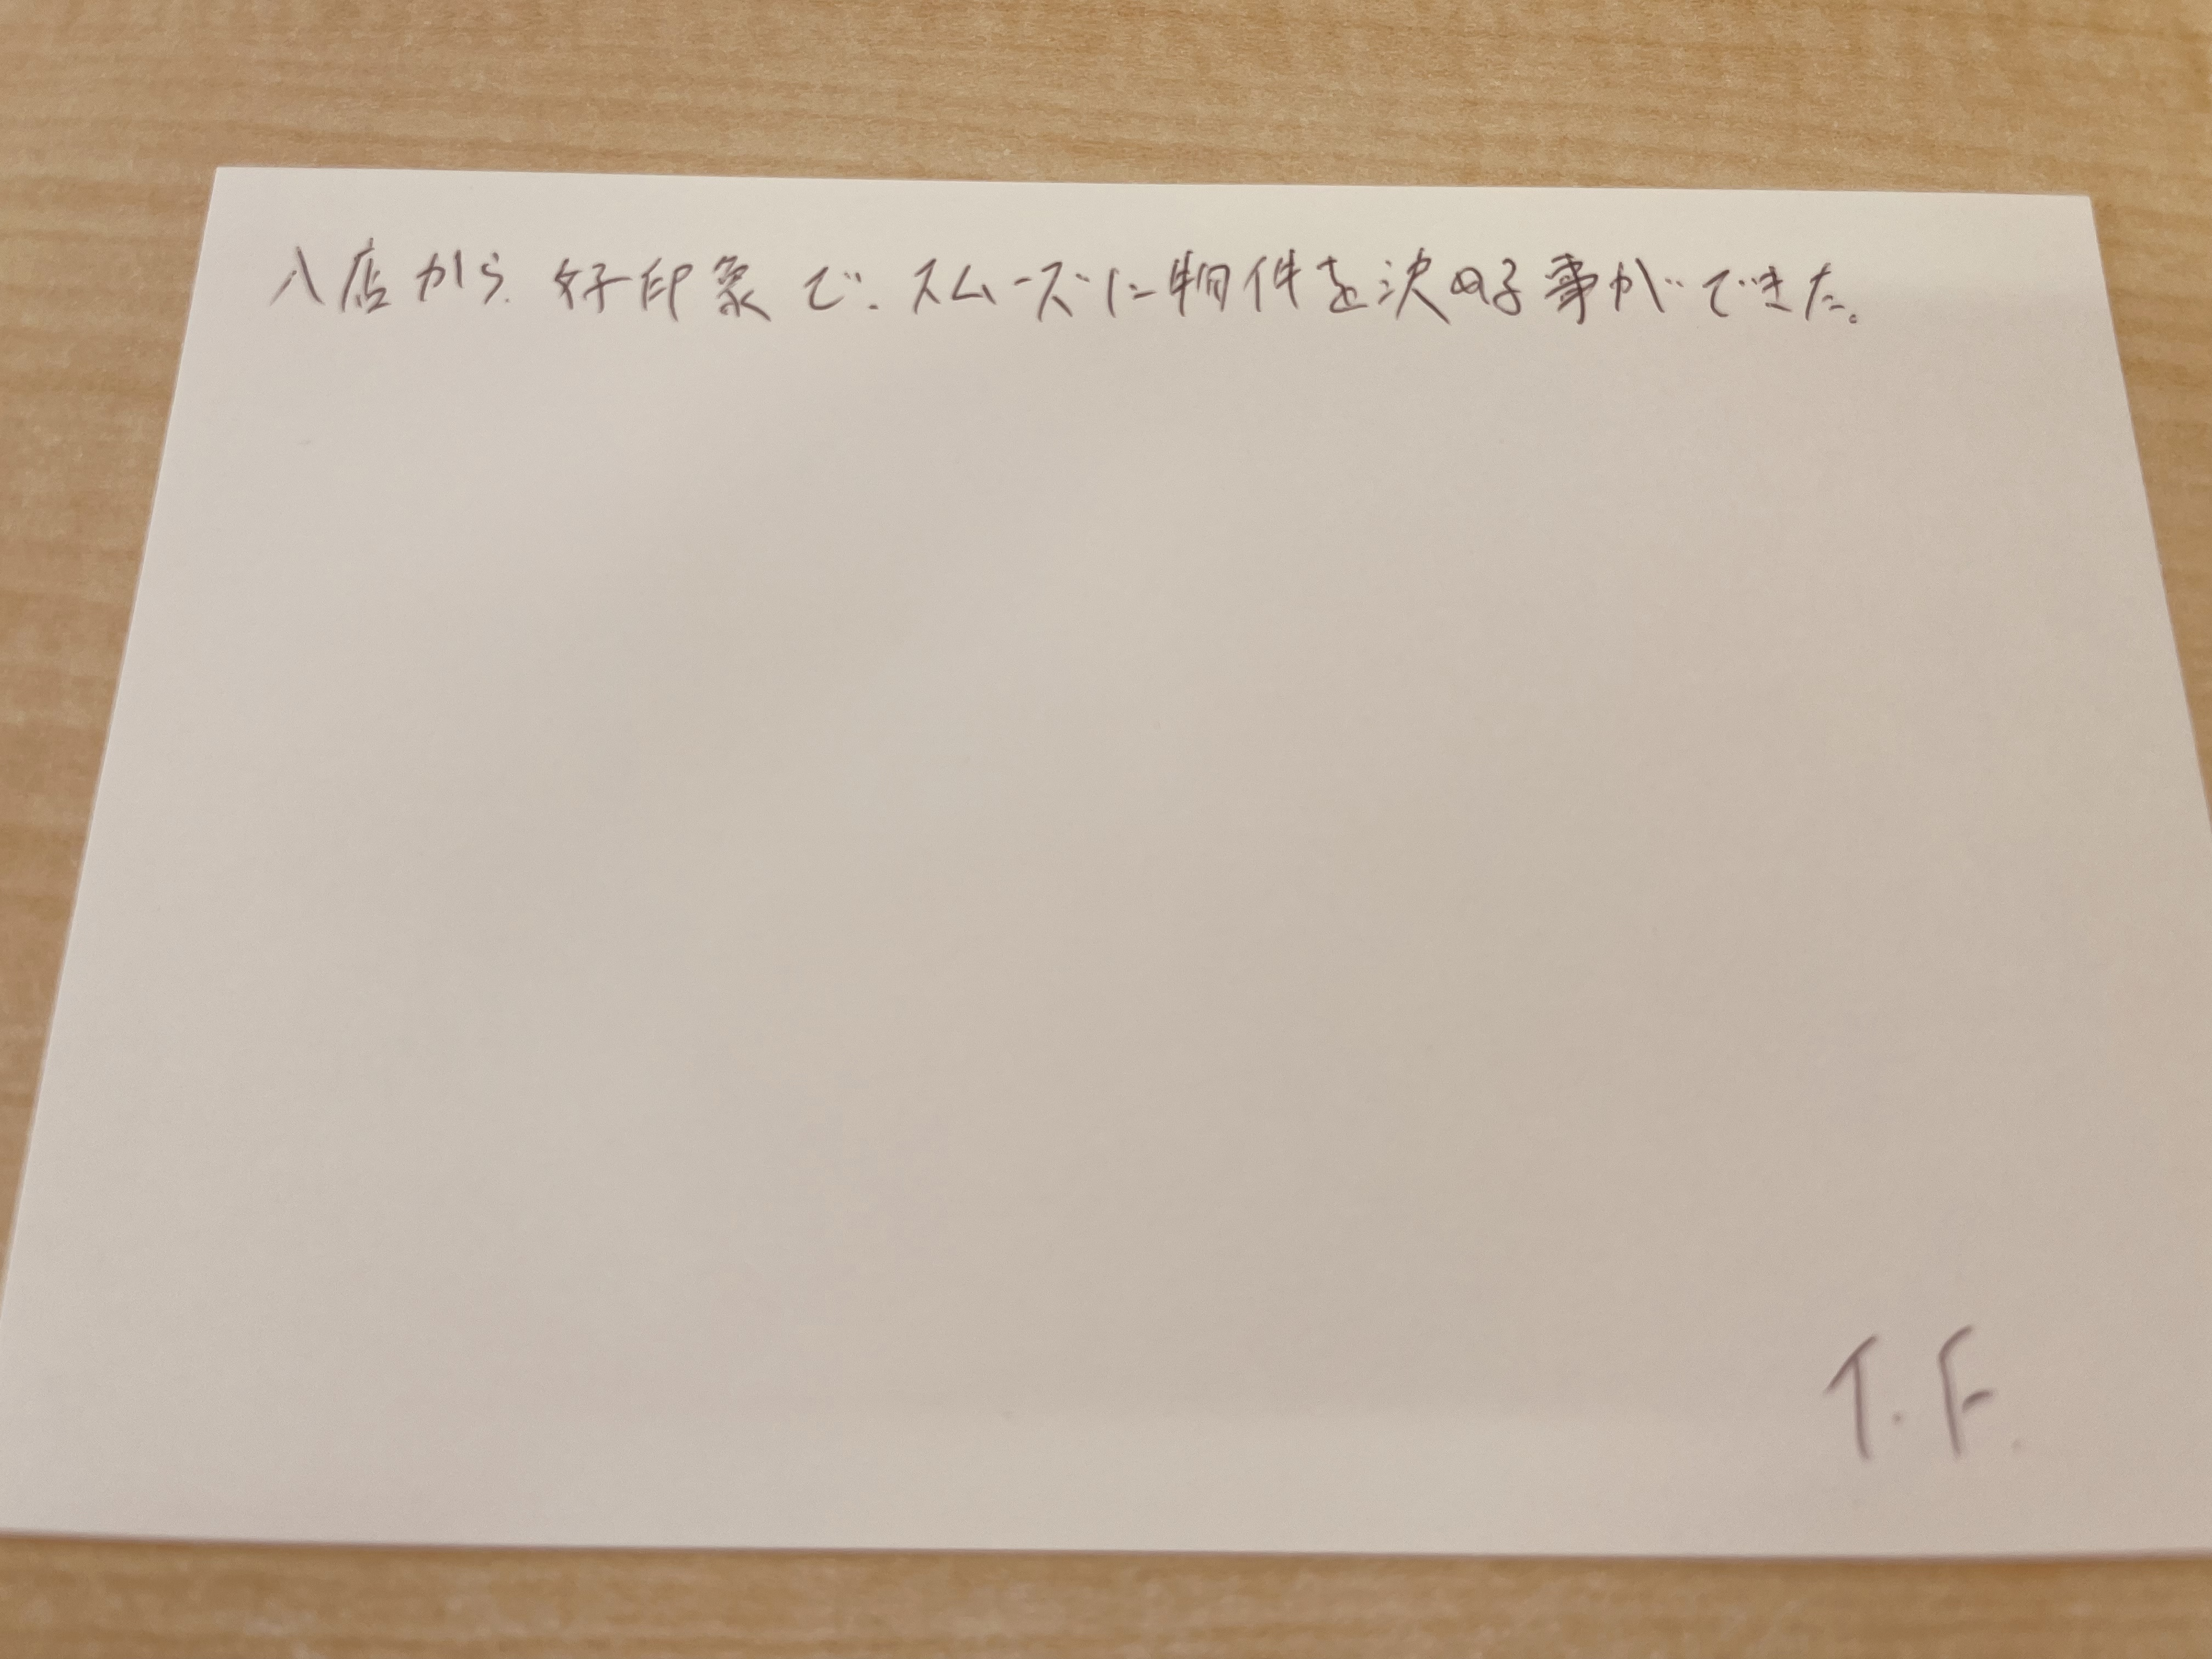 入店から好印象で、スムーズに物件を決める事ができた。
T.F.